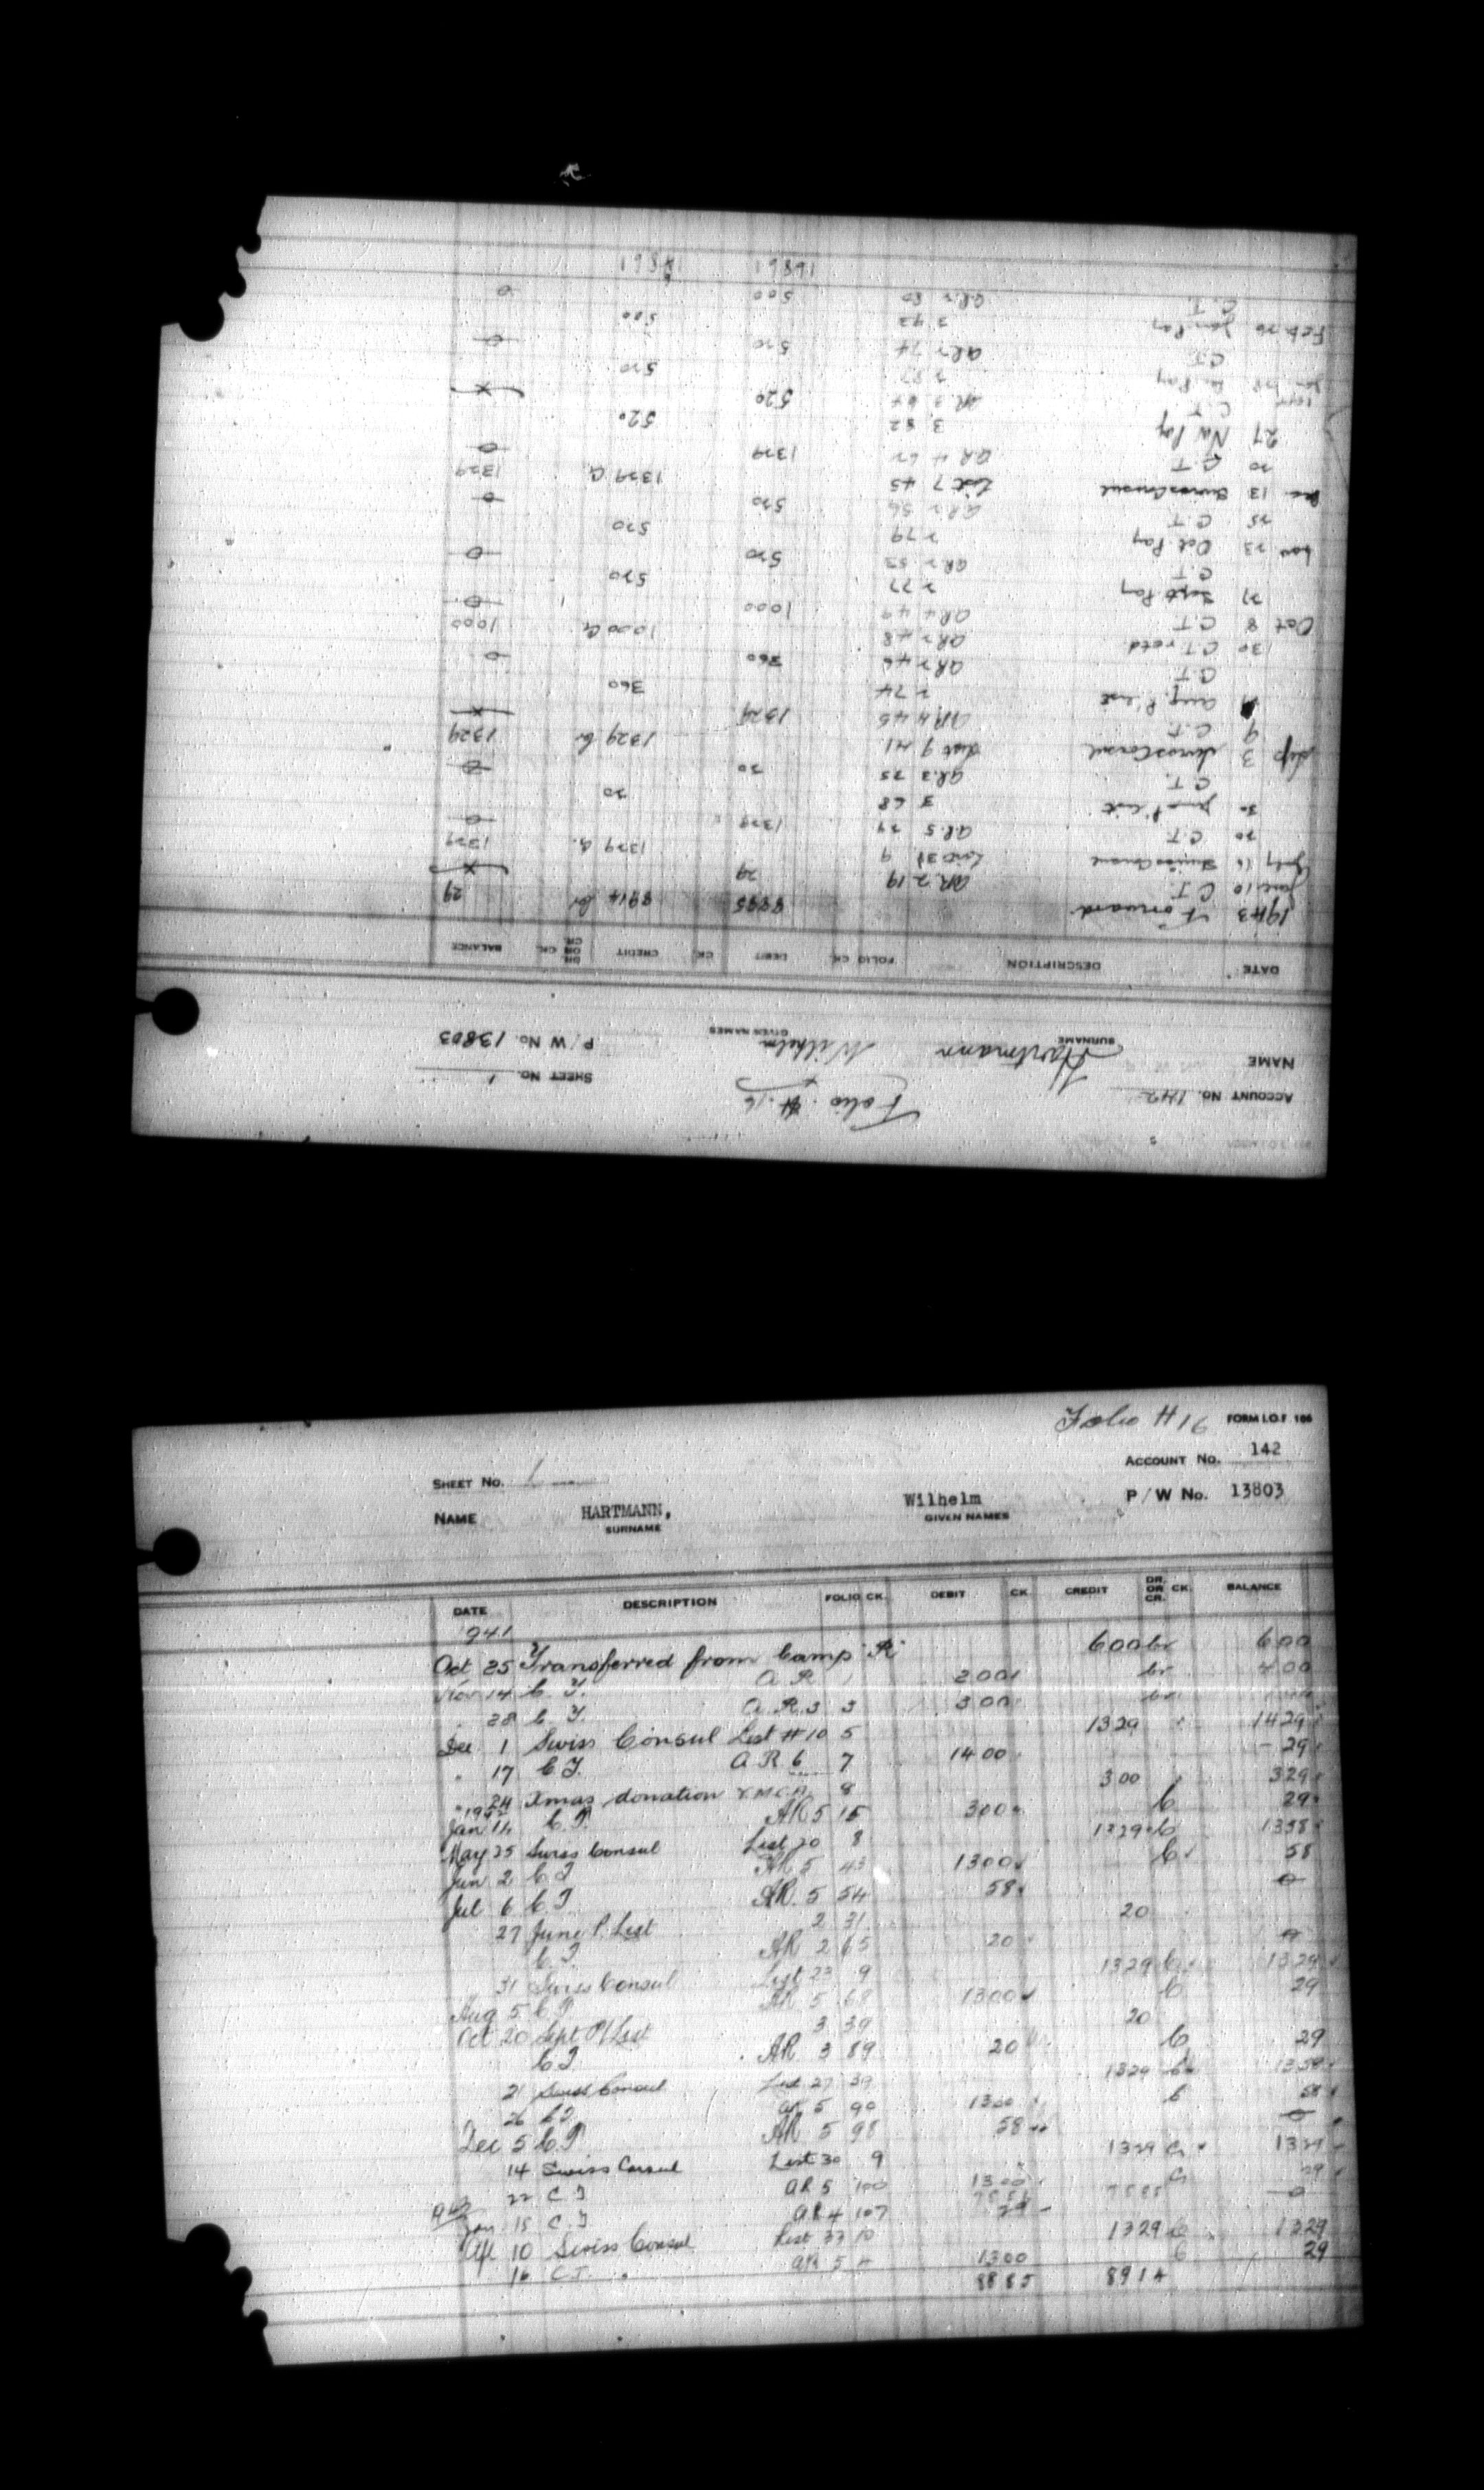 ACCOUNT No. 142
Folio #. 16
SHEET No. 1
NAME Hartmann Wilhelm P/W No. 13803
SURNAME GIVEN NAMES
DATE DESCRIPTION FOLIO CK. DEBIT CK. CREDIT DR. OR CR. CK. BALANCE
1943 Forward 8885 8914 Cr 29
June 10 C.T. AR. 2 19 29
July 16 Swiss Consul List 9 1329 Cr 1329
20 C.T. AR. 5 29 1329 0
30 June P. List 3 68 20
C.T. AR. 3 35 20 0
Sep 3 Swiss Consul List 9 41 1329 Cr 1329
9 C.T. AR. 4 45 1329
Aug P. List 2 74 360
C.T. AR 2 46 360 0
30 C.T. retd AR 2 48 1000 Cr 1000
Oct 8 C.T. AR 4 49 1000 0
21 Sept Pay 2 77 520
C.T. AR 2 53 520 0
Nov 23 Oct. Pay 2 79 520
25 C.T. AR 2 56 520 0
Dec 13 Swiss Consul List 7 45 1329 Cr 1329
20 C.T. AR 4 62 1329 0
27 Nov Pay 3 82 520
C.T. AR 3 64 520
Pay 520
C.T. AR 2 74 520 0
Feb Jan Pay 500
C.T. AR 2 80 500 0
16861 16861
Folio #16 FORM I.O.F. 106
ACCOUNT No. 142
SHEET No. 1
NAME HARTMANN, Wilhelm P/W No. 13803
SURNAME GIVEN NAMES
DATE DESCRIPTION FOLIO CK. DEBIT CK CREDIT DR. OR CR. CK. BALANCE
941
Oct 25 Transferred from Camp "R" 600 Cr 600
Nov 14 C.T. A R 1 200 Cr 400
" 28 C.T. A.R. 3 3 300 Cr
Dec. 1 Swiss Consul List #10 5 1329 1429
" 17 C.T. A R 6 7 1400 29
" 24 Xmas donation Y.M.C.A. 8 300 329
1942
Jan 14 C.T. AR 5 15 300 C 29
May 25 Swiss Consul List 20 8 1329 C 1358
Jun 2 C.T. AR 5 43 1300 C 58
Jul 6 C.T. AR. 5 54 58 0
27 June P. List 2 31 20
C.T. AR 2 65 20 0
31 Swiss Consul List 23 9 1329 C 1329
Aug 5 C.T. AR 5 68 1300 C 29
Oct 20 Sept P/List 3 39 20
C.T. AR 3 89 20 C 29
21 Swiss Consul List 27 39 1329 C 1358
26 C.T. AR 5 90 1300 C 58
Dec 5 C.T. AR 5 98 58 0
14 Swiss Consul List 30 9 1329 Cr 1329
22 C.T. AR 5 100 1300 Cr 29
Jan. 15 C.T. AR 4 107 29 7585 0
Apl 10 Swiss Consul List 33 10 1329 C 1329
16 C.T. AR 5 1300 C 29
8885 8914